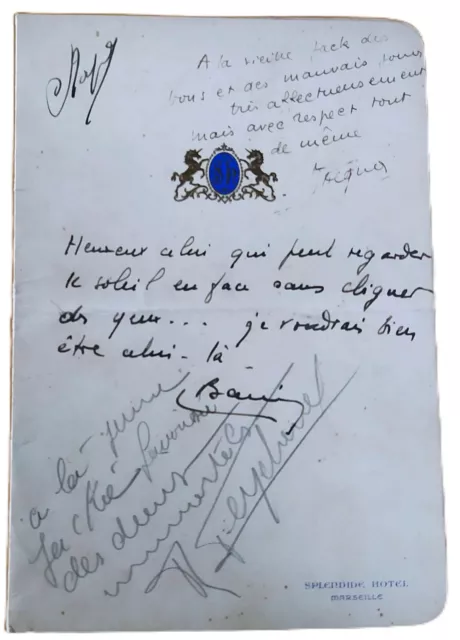 A la vieille Jack des
bons et des mauvais jours
très affectueusement
mais avec respect tout
de même
Heureux celui qui peut regarder
le soleil en face sans cligner
des yeux... je voudrais bien
être celui-là
a la jeune
Jackie
des dieux
immortels
SPLENDIDE HOTEL
MARSEILLE